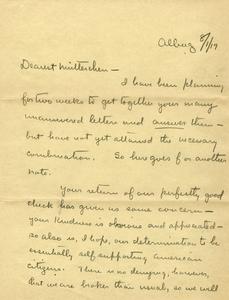 Albany 8/1/19
Dearest Mütterchen –
I have been planning
for two weeks to get together your many
unanswered letters and answer them –
but have not yet attained the necessary
combination. So here goes for another
note.
Your return of our perfectly good
check has given us some concern –
your kindness is obvious and appreciated –
so also is, I hope, our determination to be
essentially self supporting american
citizens. There is no denying, however,
that we are broker than usual, so we will